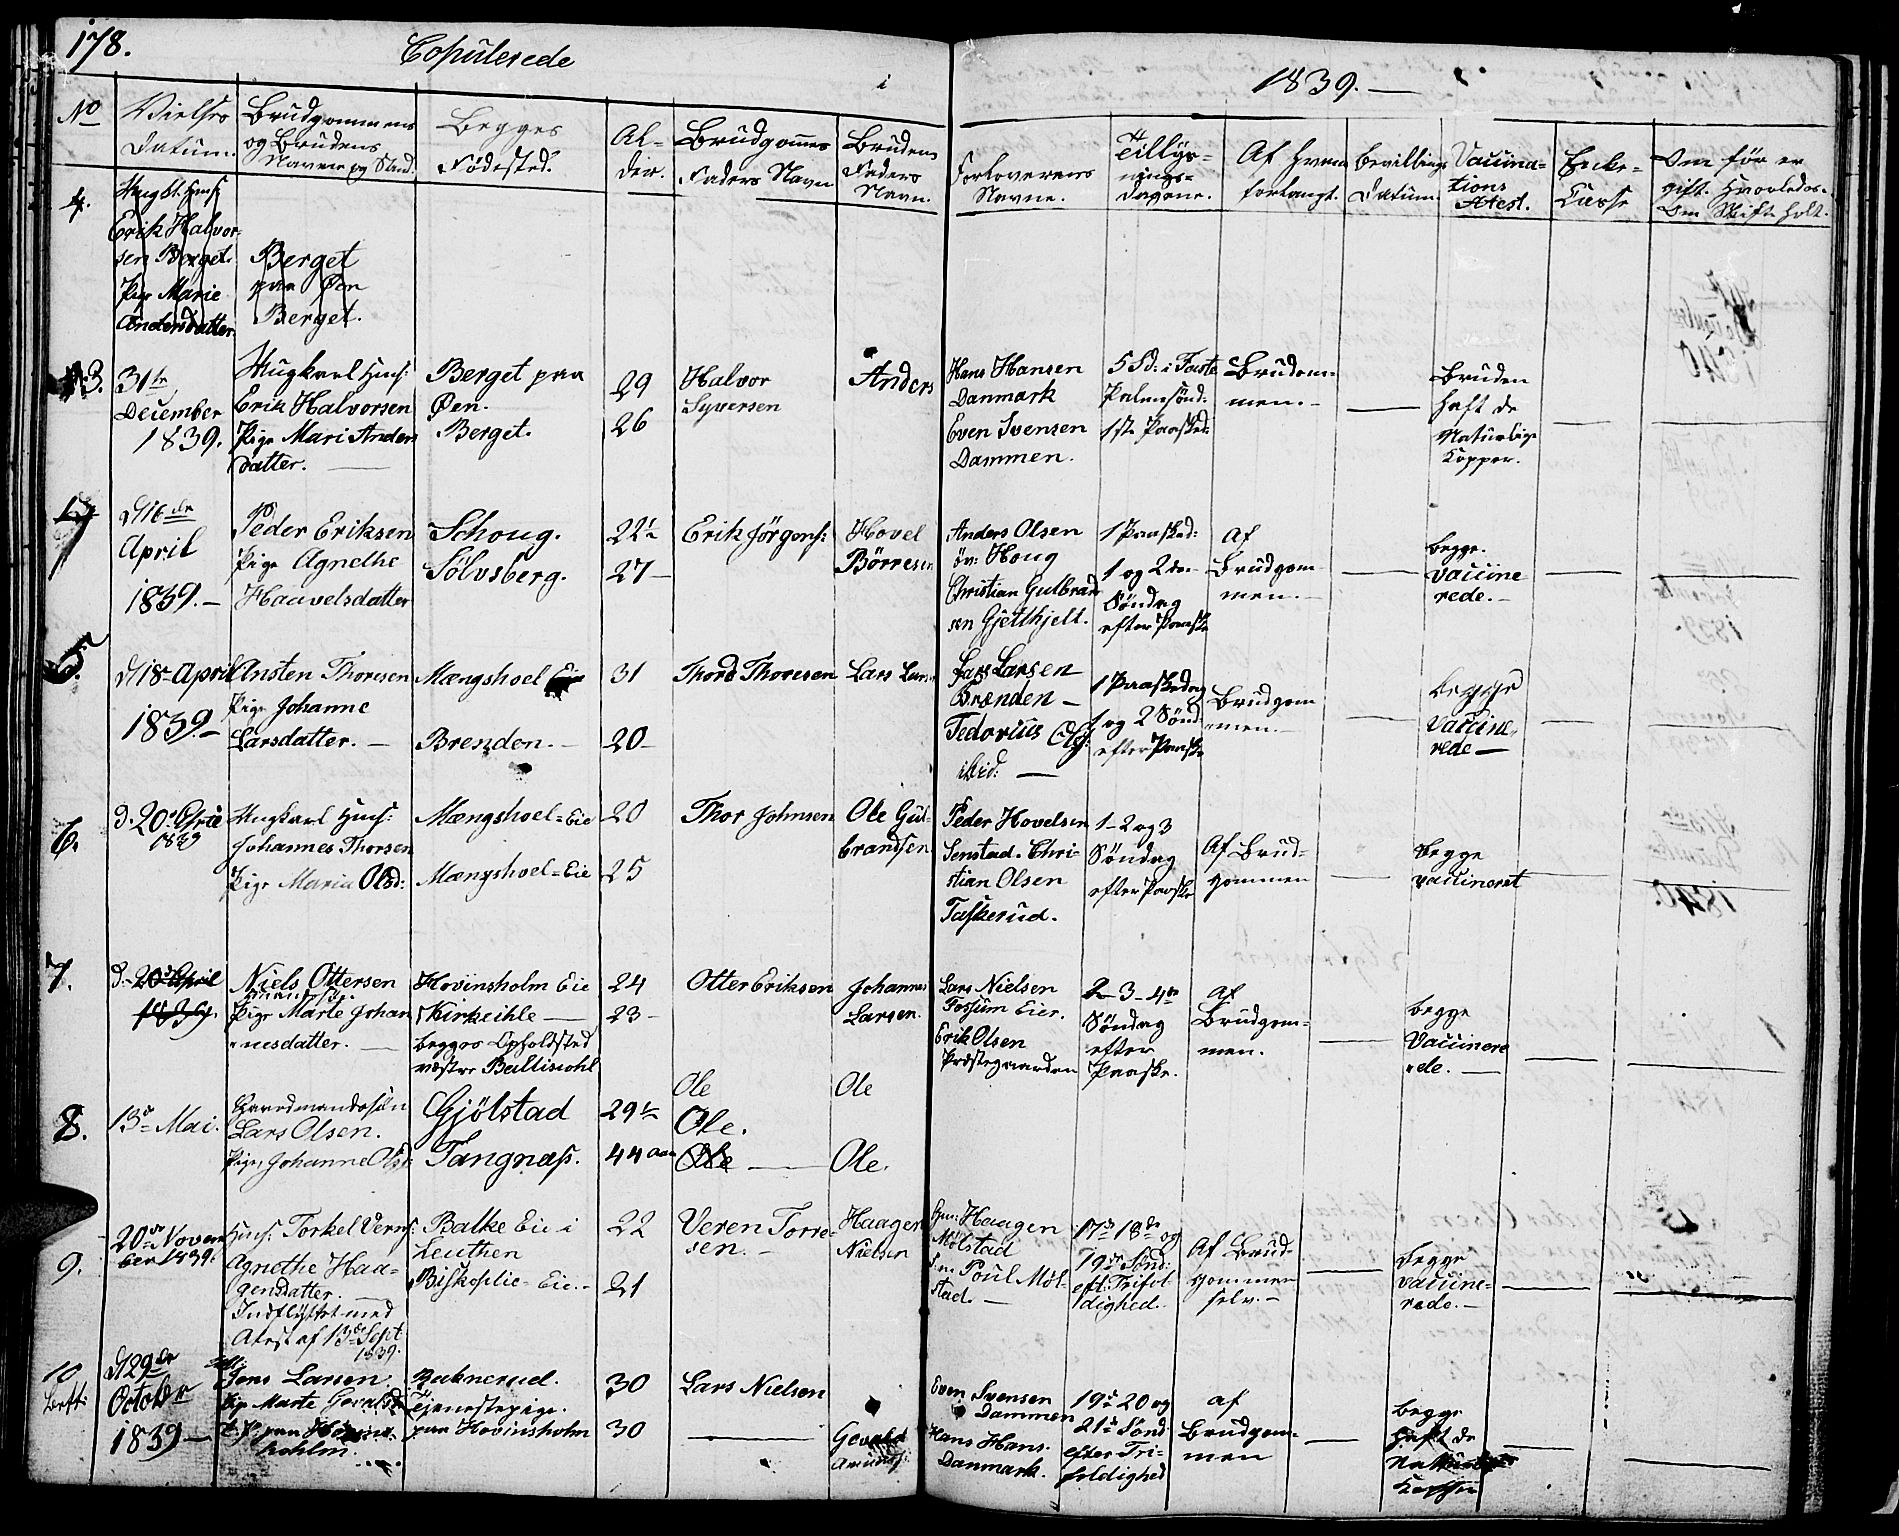 178.
Copulerede
i
1839. —
No
Vielses Datum.
Brudgommens og Brudens Navne og Stand.
Begges Fødested.
Al- der.
Brudgoms Faders Navn
Brudens Faders Navn.
Forloverens Navne.
Tillys- nings- Dagene.
Af hvem forlangt.
Bevillings Datum.
Vaccina- tions Atest.
Enke- Casse
Om før er gift. Hvorledes. Om Skifte holt.
4.
Ungk. Huus:
Erik Halvor-
sen Berget.
Pige Marie
Andersdatter.
Berget
paa Øen
Berget.
3.
31te December 1839.
Ungkarl Huus:
Erik Halvorsen
Pige Mari Anders
datter. —
Berget paa
Øen.
Berget.
29
26
Halvor
Syversen
Anders
Hans Hansen
Danmark
Even Svensen
Dammen.
5 Sd: i Faste
Palmesönd:
1ste Paasked:
Brudom-
men. -
Bruden
haft de
Naturlige
Kopper.
d 16de
April
1839. —
Peder Eriksen
Pige Agnethe
Haavelsdatter
Schoug.
Sölvsberg.
22½
27 —
Erik Jörgens:
Hovel
Börresen
Anders Olsen
öv: Houg
Christian Gulbrand
sen Gjetthjelt.
1 Paasked:
1 og 2den
Söndag
efter Paaske
Af
Brudgom-
men. —
begge.
vaccine
rede. —
5.
d 18 April
1839 —
Ansten Thoresen
Pige Johanne
Larsdatter. —
Mængshoel Eie
Brenden. —
31
20 —
Thord Thoresen
Lars Lars
Lars Larsen
Brænden —
Tedorius Ols:
ibid: —
1 Paaskedag
1 og 2 Sönd:
efter Paaske
Brudgom
men. —
begge
vaccine,
rede —
6.
d. 20 April
1839
Ungkarl Huus:
Johannes Thorsen
Pige Maria Olsd:
Mængshoel = Eie
Mængshoel = Eie
20
25
Thor Johnsen
Ole Gul-
brandsen
Peder Hovelsen
Senstad. Chri-
stian Olsen
Taskerud.
1 - 2 og 3
Söndag
efter Paaske
Af Brud-
gommen
begge
vaccineret
7.
d. 20 April
1839.
Niels Ottersen
Pige Marte Johan
nesdatter. —
Hovinsholm Eie
Kirkeihle —
begges Opholdsted
vestre Ballisiohl
24
23 —
Otter Eriksen
Johannes
Larsen.
Lars Nielsen
Fossum Eier.
Erik Olsen
Præstegaarden
2 - 3 - 4de
Söndag
efter
Paaske.
Af
Brudgom-
men.
begge
Vaccinere
ede. —
8.
13 Mai.
Gaardmandssön
Lars Olsen.
Pige Johanne Olsd
Gjölstad
Tangnæs.
29
44 aar
Ole
Ole.
Ole —
Ole
Ole.
9.
20de Novem
ber 1839.
Huus: Torkel Verns:
Agnethe Haa-
gensdatter. —
Indflyttet med
Atest af 13de Sept
1839.
Balke Eie i
Leuthen
Biskoplie - Eie. -
22
21
Veren Torre-
sen. —
Haagen
Nielsen
Haagen
Mølstad
Poul Møl-
stad. —
17de 18de og
19de Sönd:
eft: Trefol-
dighed.
Af Brud-
gommen
selv. —
begge
vaccine-
rede. —
10
d 29de
October
1839 —
Jens Larsen
Pige Marte Gevalsd:
Buknerud.
Tjenestepige.
paa Hovinsholm
30
30
Lars Nielsen
Gevald
Even Svensen
Dammen
Hans Hans.
Danmark.
19de 20 og
21de Sönd
efter Tri-
foldighed
af
Brudgom-
men
begge
haft de
Naturlige
Kopper